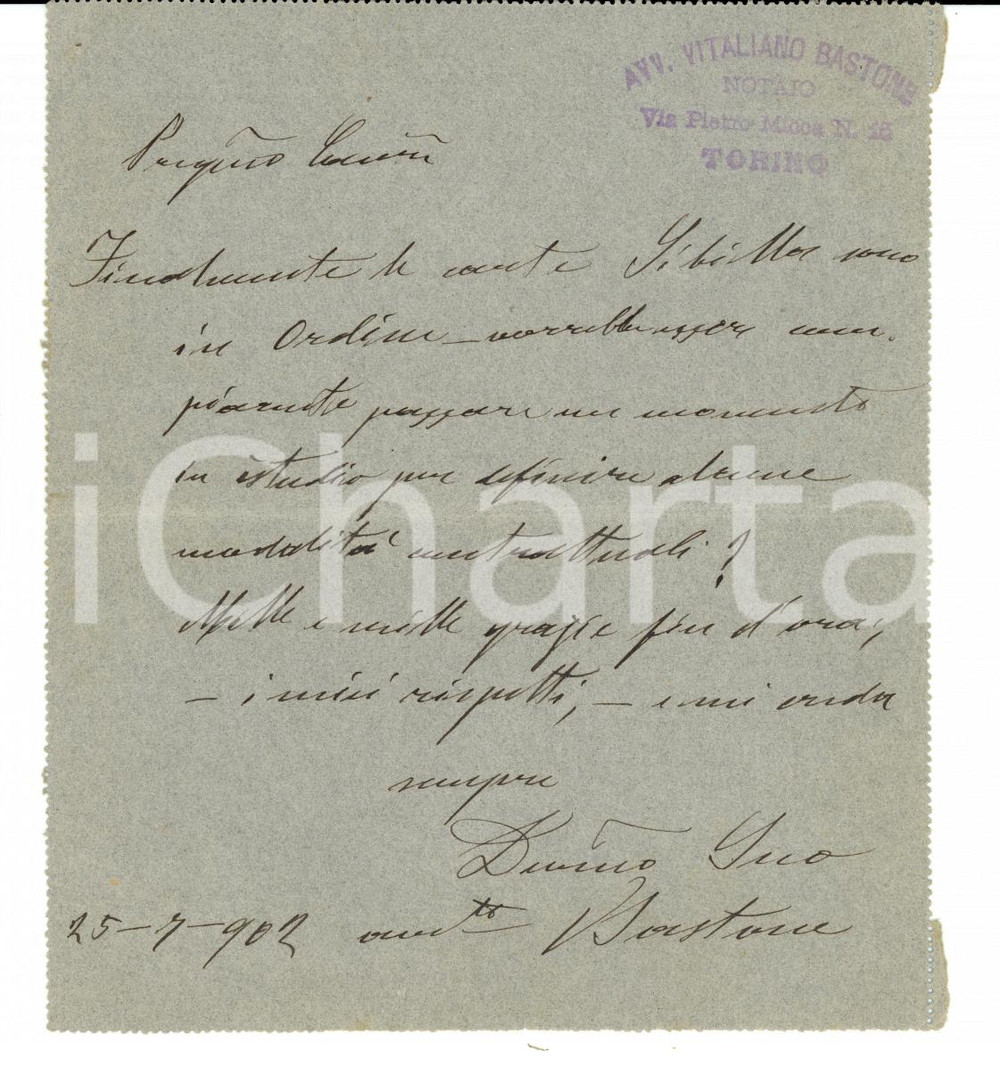 AVV. VITALIANO BASTONE
NOTAIO
Via Pietro Micca N. 18
TORINO
Pregmo
Finalmente le carte Sibilla sono
in Ordine – vorrebbe essere com-
piacente passare un momento
in istudio per definire alcune
modalità contrattuali?
Mille e mille grazie fin d'ora;
– i miei rispetti, – e mi creda
sempre
Devmo Suo
25-7-902 Bastone
iCharta